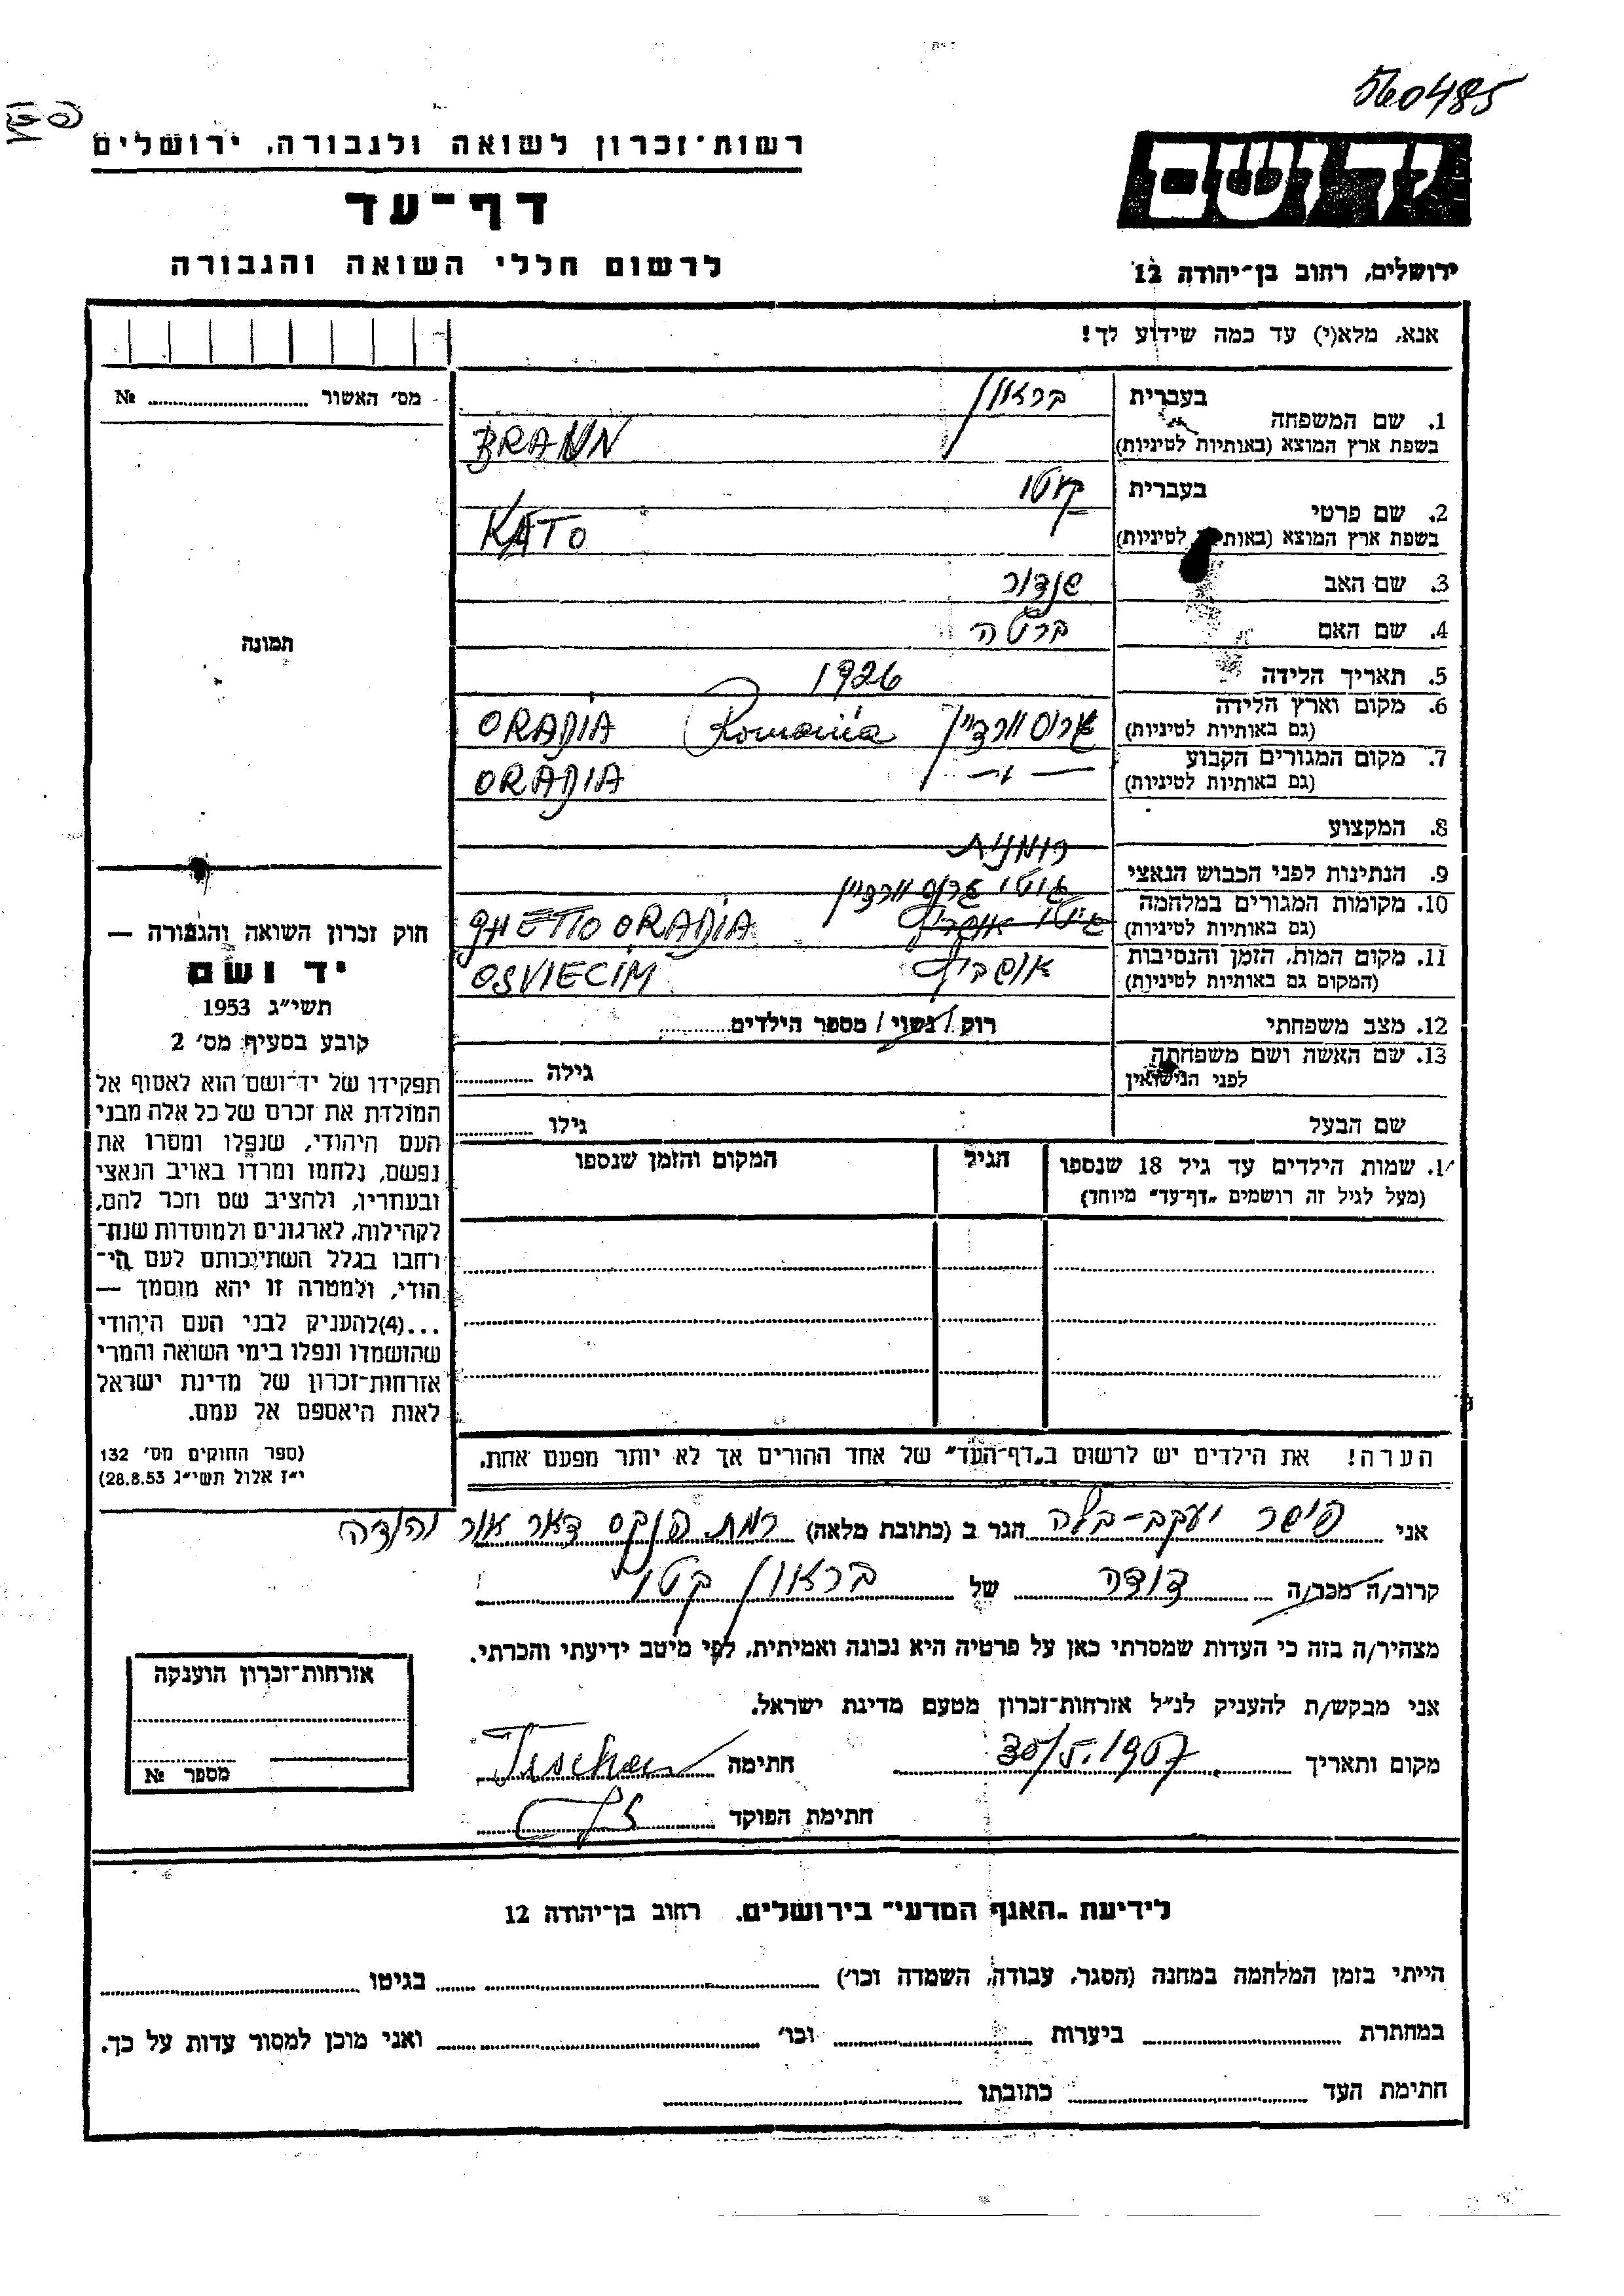 560485
רשות־זכרון לשואה ולגבורה, ירושלים
יד ושם
דף־עד
לרשום חללי השואה והגבורה
ירושלים, רחוב בן־יהודה 12
אנא, מלא(י) עד כמה שידוע לך!
מס׳ האשור № 
1. שם המשפחה
בעברית בראון
בשפת ארץ המוצא (באותיות לטיניות) BRAUN
2. שם פרטי
בעברית קטו
בשפת ארץ המוצא (באותיות לטיניות) KATO
3. שם האב שנדור
4. שם האם ברטה
תמונה
5. תאריך הלידה 1926
6. מקום וארץ הלידה
(גם באותיות לטיניות) גרוסוורדיין Romania ORADIA
7. מקום המגורים הקבוע
(גם באותיות לטיניות) — " — ORADIA
8. המקצוע
9. הנתינות לפני הכבוש הנאצי רומנית
10. מקומות המגורים במלחמה גיטו גרוסוורדיין
(גם באותיות לטיניות) GHETTO ORADIA
11. מקום המות, הזמן והנסיבות
(המקום גם באותיות לטיניות) אושביץ OSVIECIM
12. מצב משפחתי רוק / נשוי / מספר הילדים
13. שם האשה ושם משפחתה
לפני הנישואין גילה
שם הבעל גילו
14. שמות הילדים עד גיל 18 שנספו הגיל המקום והזמן שנספו
(מעל לגיל זה רושמים „דף־עד" מיוחד)
חוק זכרון השואה והגבורה —
יד ושם
תשי״ג 1953
קובע בסעיף מס׳ 2
תפקידו של יד־ושם הוא לאסוף אל
המולדת את זכרם של כל אלה מבני
העם היהודי, שנפלו ומסרו את
נפשם, נלחמו ומרדו באויב הנאצי
ובעוזריו, ולהציב שם וזכר להם,
לקהילות, לארגונים ולמוסדות שנח־
רחבו בגלל השתייכותם לעם הי־
הודי, ולמטרה זו יהא מוסמך —
...(4)להעניק לבני העם היהודי
שהושמדו ונפלו בימי השואה והמרי
אזרחות־זכרון של מדינת ישראל
לאות היאספם אל עמם.
(ספר החוקים מס׳ 132
י״ז אלול תשי״ג 28.8.53)
הערה! את הילדים יש לרשום ב„דף־העד" של אחד ההורים אך לא יותר מפעם אחת.
אני פישר יעקב-בלה הגר ב (כתובת מלאה) רמת פנקס דאר אור יהודה
קרוב/ה מכר/ה דודה של בראון קטו
מצהיר/ה בזה כי העדות שמסרתי כאן על פרטיה היא נכונה ואמיתית, לפי מיטב ידיעתי והכרתי.
אני מבקש/ת להעניק לנ״ל אזרחות־זכרון מטעם מדינת ישראל.
מקום ותאריך 30/5.1957 חתימה Fischer
חתימת הפוקד
אזרחות־זכרון הוענקה
מספר №
לידיעת „האגף המדעי" בירושלים, רחוב בן־יהודה 12
הייתי בזמן המלחמה במחנה (הסגר, עבודה, השמדה וכו׳) בגיטו
במחתרת ביערות וכו׳ ואני מוכן למסור עדות על כך.
חתימת העד כתובתו